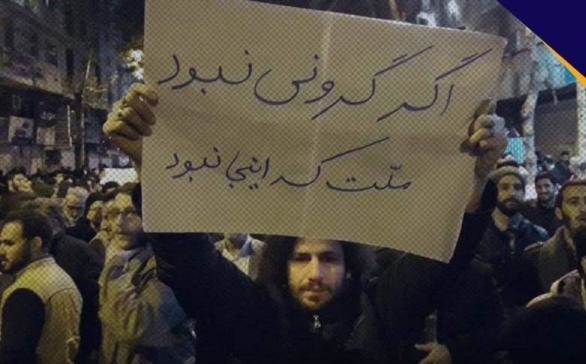 اگر گرونی نبود
ملّت که اینجا نبود